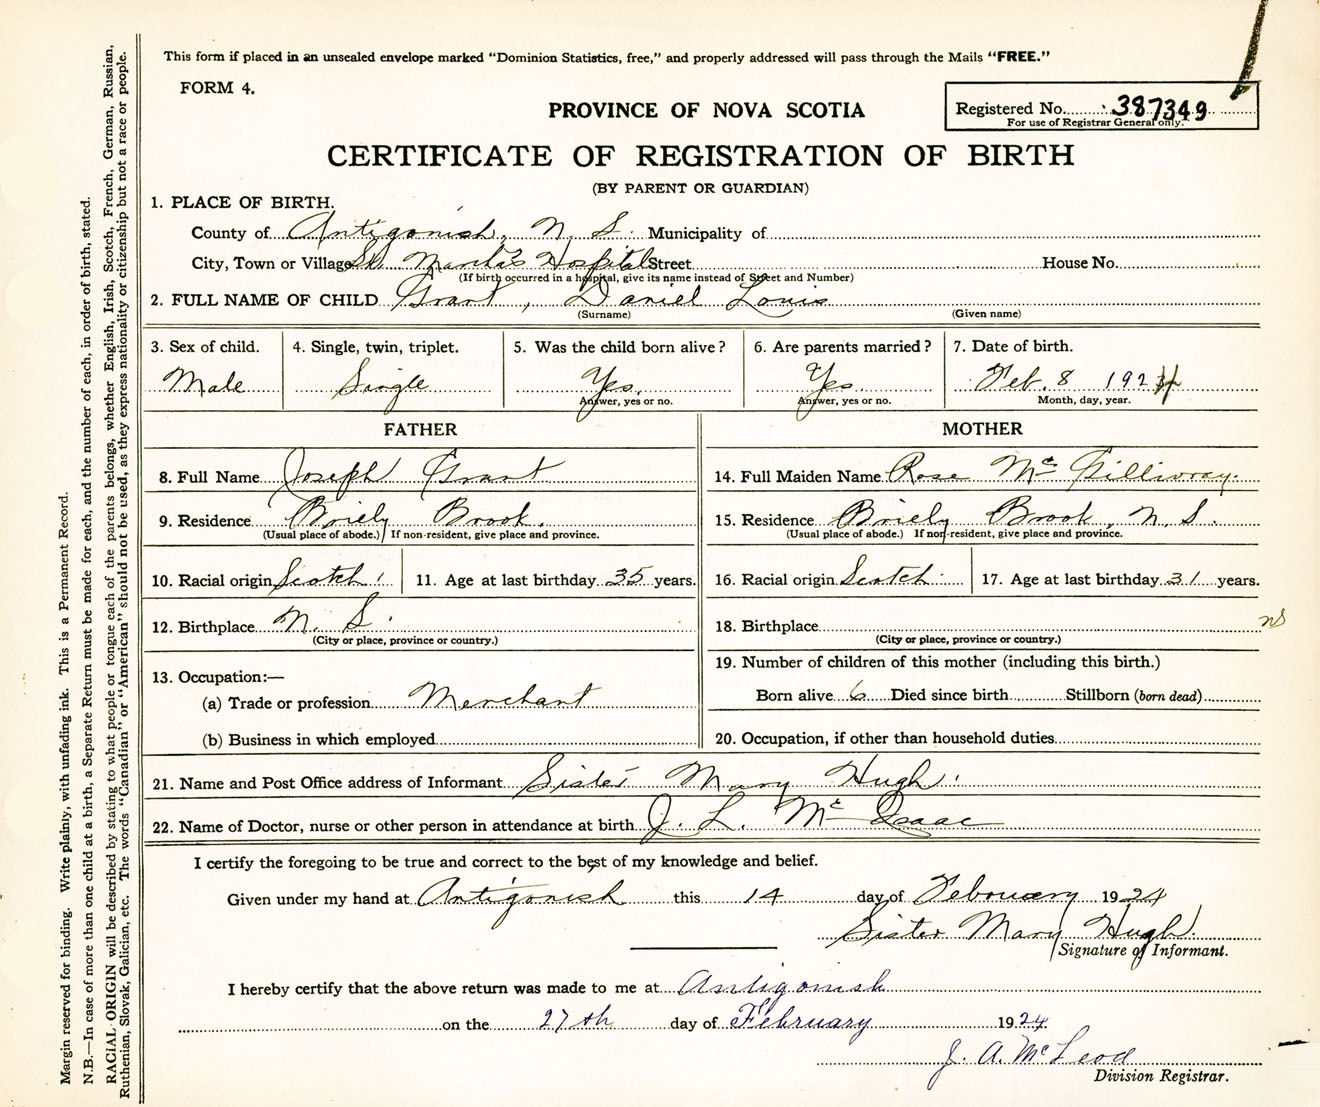 This form if placed in an unsealed envelope marked "Dominion Statistics, free," and properly addressed will pass through the Mails "FREE."
FORM 4.
Registered No. 387349
For use of Registrar General only.
PROVINCE OF NOVA SCOTIA
CERTIFICATE OF REGISTRATION OF BIRTH
(BY PARENT OR GUARDIAN)
1. PLACE OF BIRTH.
County of Antigonish, N. S. Municipality of
City, Town or Village St. Martha's Hospital Street House No.
(If birth occurred in a hospital, give its name instead of Street and Number)
2. FULL NAME OF CHILD Grant, Daniel Louis
(Surname) (Given name)
3. Sex of child. 4. Single, twin, triplet. 5. Was the child born alive? 6. Are parents married? 7. Date of birth.
Male Single Yes. Yes. Feb. 8 1924
Answer, yes or no. Answer, yes or no. Month, day, year.
FATHER MOTHER
8. Full Name Joseph Grant 14. Full Maiden Name Rose Mc Gillivray.
9. Residence Briely Brook. 15. Residence Briely Brook, N. S.
(Usual place of abode.) If non-resident, give place and province. (Usual place of abode.) If non-resident, give place and province.
10. Racial origin Scotch 11. Age at last birthday 35 years. 16. Racial origin Scotch 17. Age at last birthday 31 years.
12. Birthplace N. S. 18. Birthplace NS
(City or place, province or country.) (City or place, province or country.)
19. Number of children of this mother (including this birth.)
13. Occupation:—
Born alive 6 Died since birth Stillborn (born dead)
(a) Trade or profession Merchant
(b) Business in which employed 20. Occupation, if other than household duties
21. Name and Post Office address of Informant Sister Mary Hugh.
22. Name of Doctor, nurse or other person in attendance at birth J. L. Mc Isaac
I certify the foregoing to be true and correct to the best of my knowledge and belief.
Given under my hand at Antigonish this 14 day of February 1924
Sister Mary Hugh.
Signature of Informant.
I hereby certify that the above return was made to me at Antigonish
on the 27th day of February 1924
J. A. McLeod
Division Registrar.
Margin reserved for binding. Write plainly, with unfading ink. This is a Permanent Record.
N.B.—In case of more than one child at a birth, a Separate Return must be made for each, and the number of each, in order of birth, stated.
RACIAL ORIGIN will be described by stating to what people or tongue each of the parents belongs, whether English, Irish, Scotch, French, German, Russian,
Ruthenian, Slovak, Galician, etc. The words "Canadian" or "American" should not be used, as they express nationality or citizenship but not a race or people.